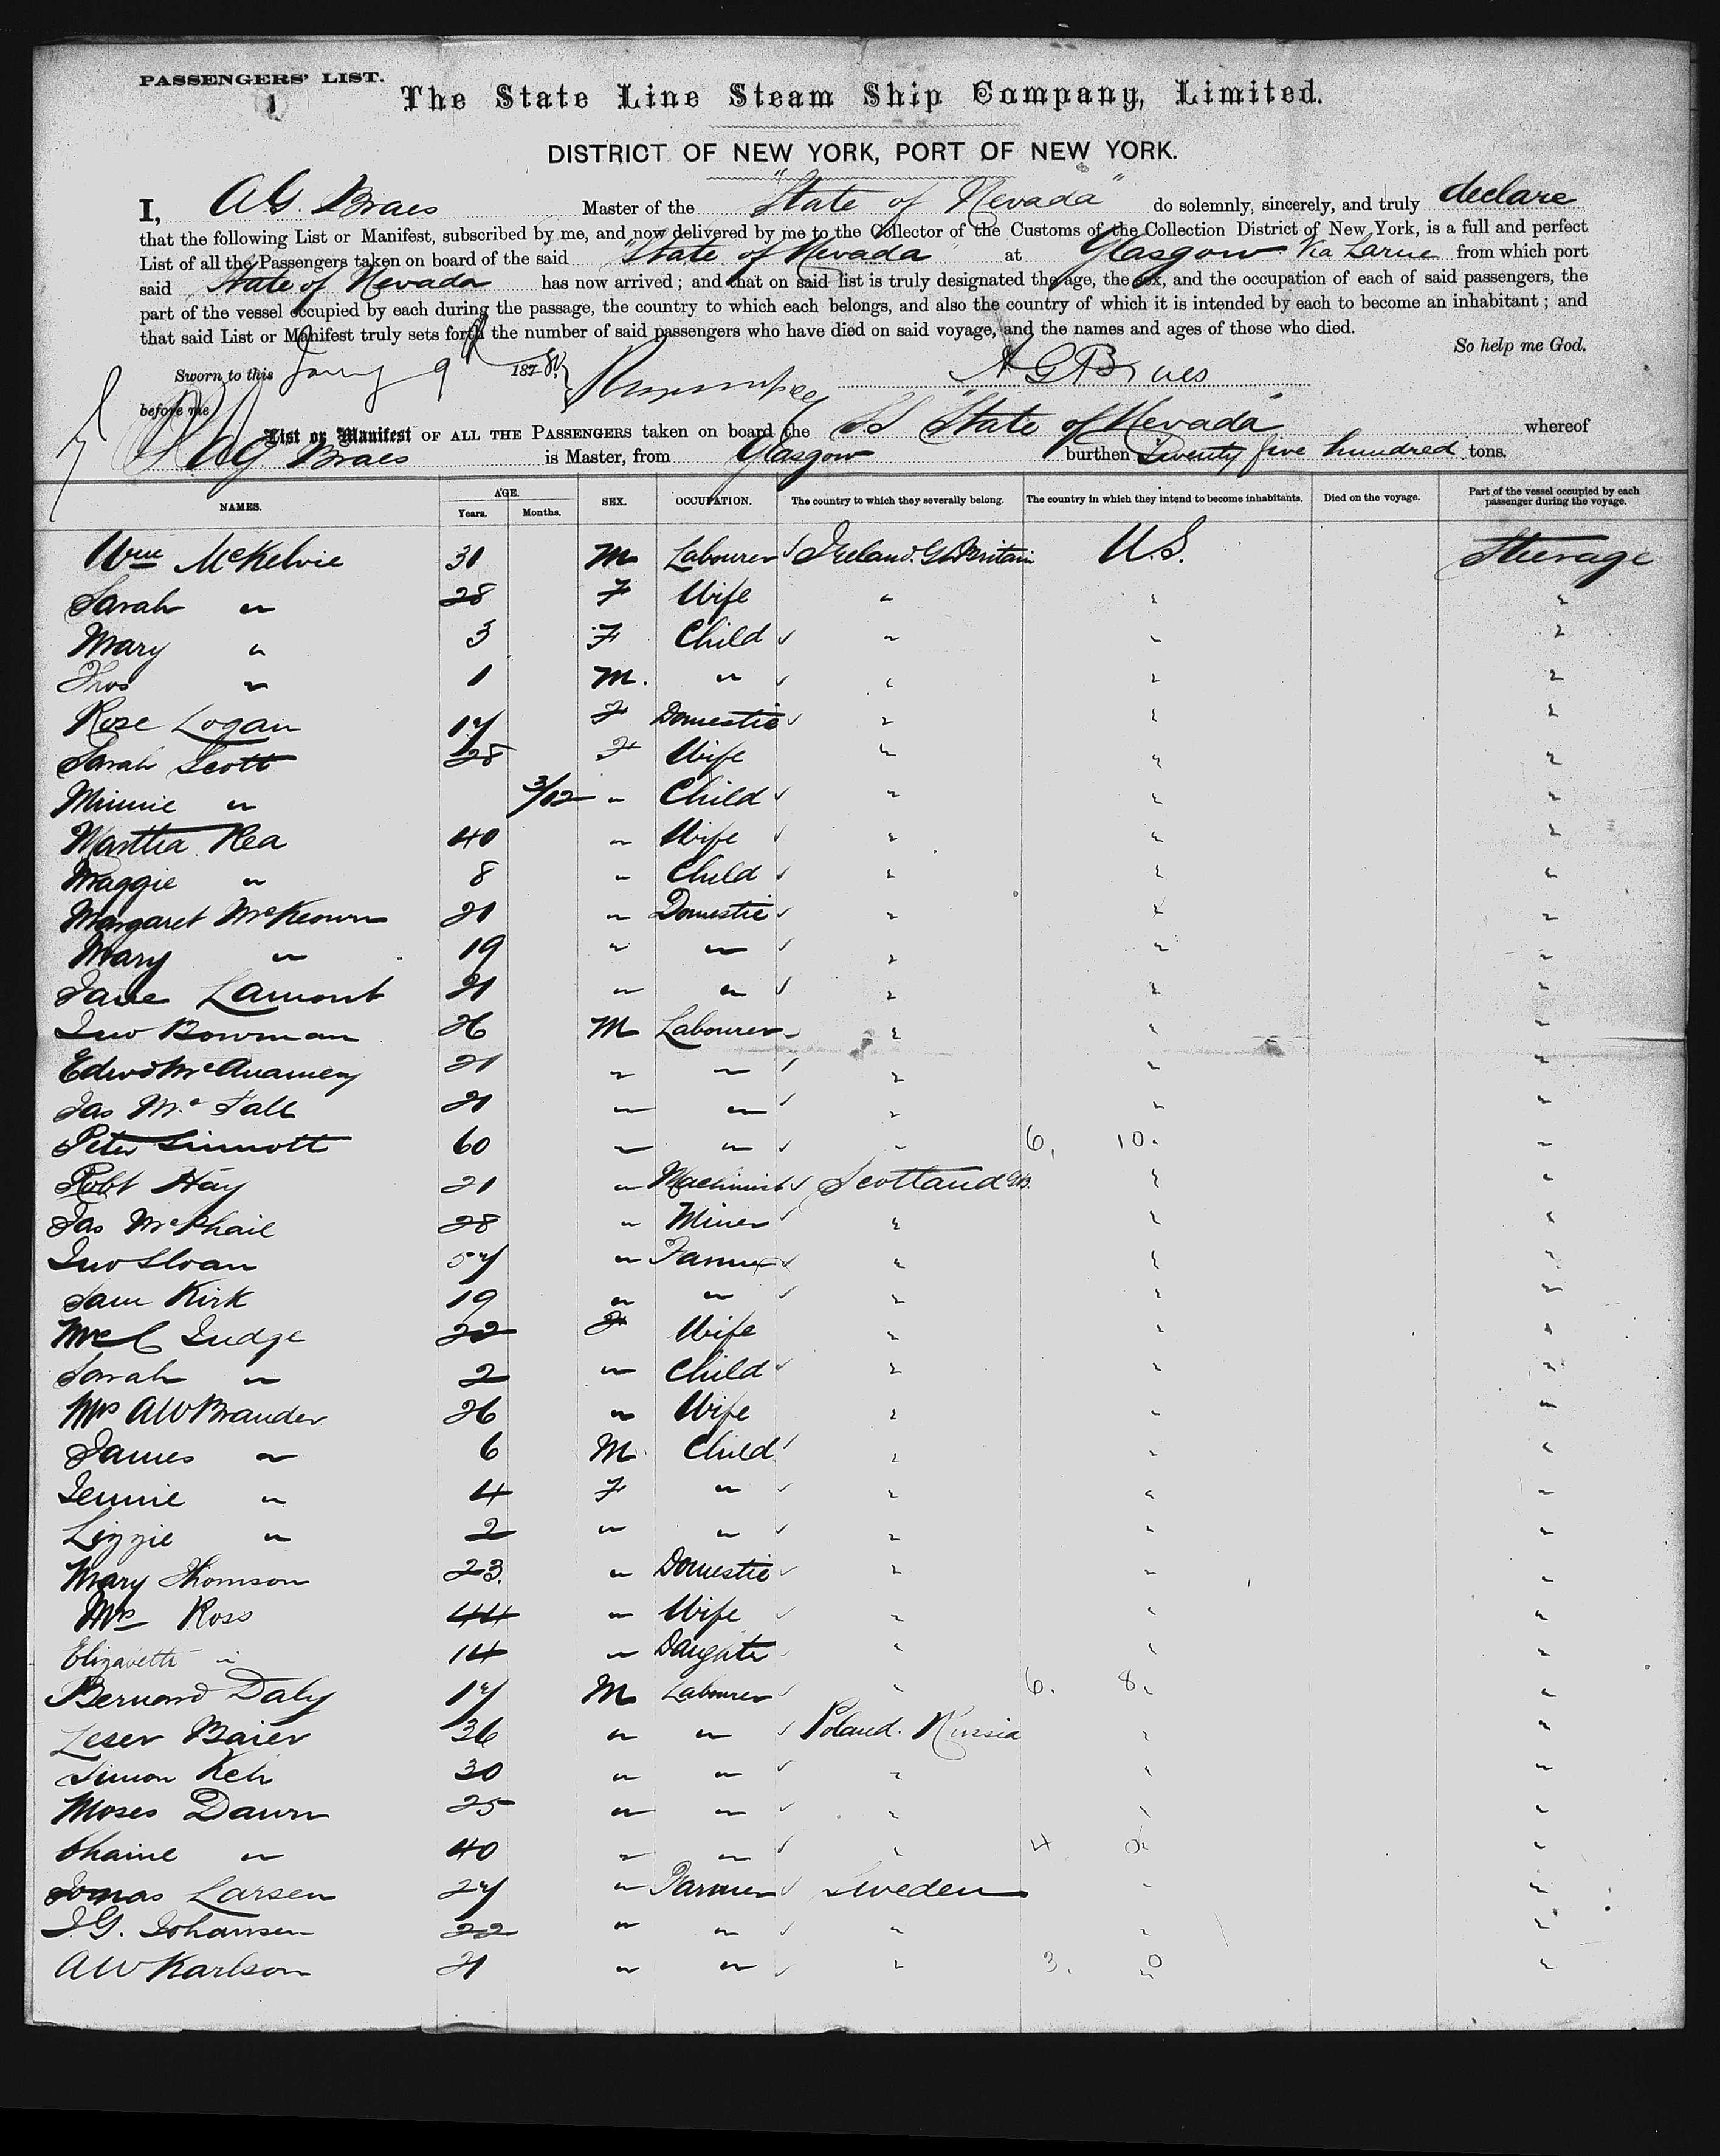 PASSENGERS' LIST.
1
The State Line Steam Ship Company, Limited.
DISTRICT OF NEW YORK, PORT OF NEW YORK.
I, A G. Braes Master of the "State of Nevada" do solemnly, sincerely, and truly declare
that the following List or Manifest, subscribed by me, and now delivered by me to the Collector of the Customs of the Collection District of New York, is a full and perfect
List of all the Passengers taken on board of the said "State of Nevada" at Glasgow Via Larne from which port
said State of Nevada has now arrived; and that on said list is truly designated the age, the sex, and the occupation of each of said passengers, the
part of the vessel occupied by each during the passage, the country to which each belongs, and also the country of which it is intended by each to become an inhabitant; and
that said List or Manifest truly sets forth the number of said passengers who have died on said voyage, and the names and ages of those who died.
So help me God.
Sworn to this Jany 9th 1878 A G Braes
before me
List or Manifest OF ALL THE PASSENGERS taken on board the SS "State of Nevada" whereof
A G Braes is Master, from Glasgow burthen Twenty five hundred tons.
NAMES. AGE. Years. Months. SEX. OCCUPATION. The country to which they severally belong. The country in which they intend to become inhabitants. Died on the voyage. Part of the vessel occupied by each passenger during the voyage.
Wm McKelvie 30 M Labourer Ireland. Gt Britain U.S. Steerage
Sarah " 28 F Wife " " "
Mary " 3 F Child " " "
Thos " 1 M. " " " "
Rose Logan 17 F Domestic " " "
Sarah Scott 28 F Wife " " "
Minnie " 3/12 " Child " " "
Martha Rea 40 " Wife " " "
Maggie " 8 " Child " " "
Margaret McKeown 21 " Domestic " " "
Mary " 19 " " " " "
Jane Lamont 21 " " " " "
Jno Bowman 26 M Labourer " " "
Edwd 21 " " " " "
Jas Mc Fall 21 " " " " "
Peter Sinnott 60 " " " 6, 10. "
Robt Hay 21 " Machinist Scotland GB. " "
Jas McPhail 28 " Miner " " "
Jno Sloan 57 " Farmer " " "
Sam Kirk 19 " " " " "
Mrs C Judge 22 F Wife " " "
Sarah " 2 " Child " " "
Mrs A W Brander 26 " Wife " " "
James " 6 M Child " " "
Jennie " 4 F " " " "
Lizzie " 2 " " " " "
Mary Thomson 23. " Domestic " " "
Mrs Ross 44 " Wife " " "
Elizabeth " 14 " Daughter " " "
Bernard Daly 17 M Labourer " 6. 8. "
Leser Baier 36 " " Poland. Russia " "
Simon Keh 30 " " " " "
Moses Dawn 25 " " " " "
Chaine " 40 " " " 4 0 "
Jonas Larsen 27 " Farmer Sweden " "
J. G. Johansen 22 " " " " "
A W Karlson 21 " " " 3. 0 " "